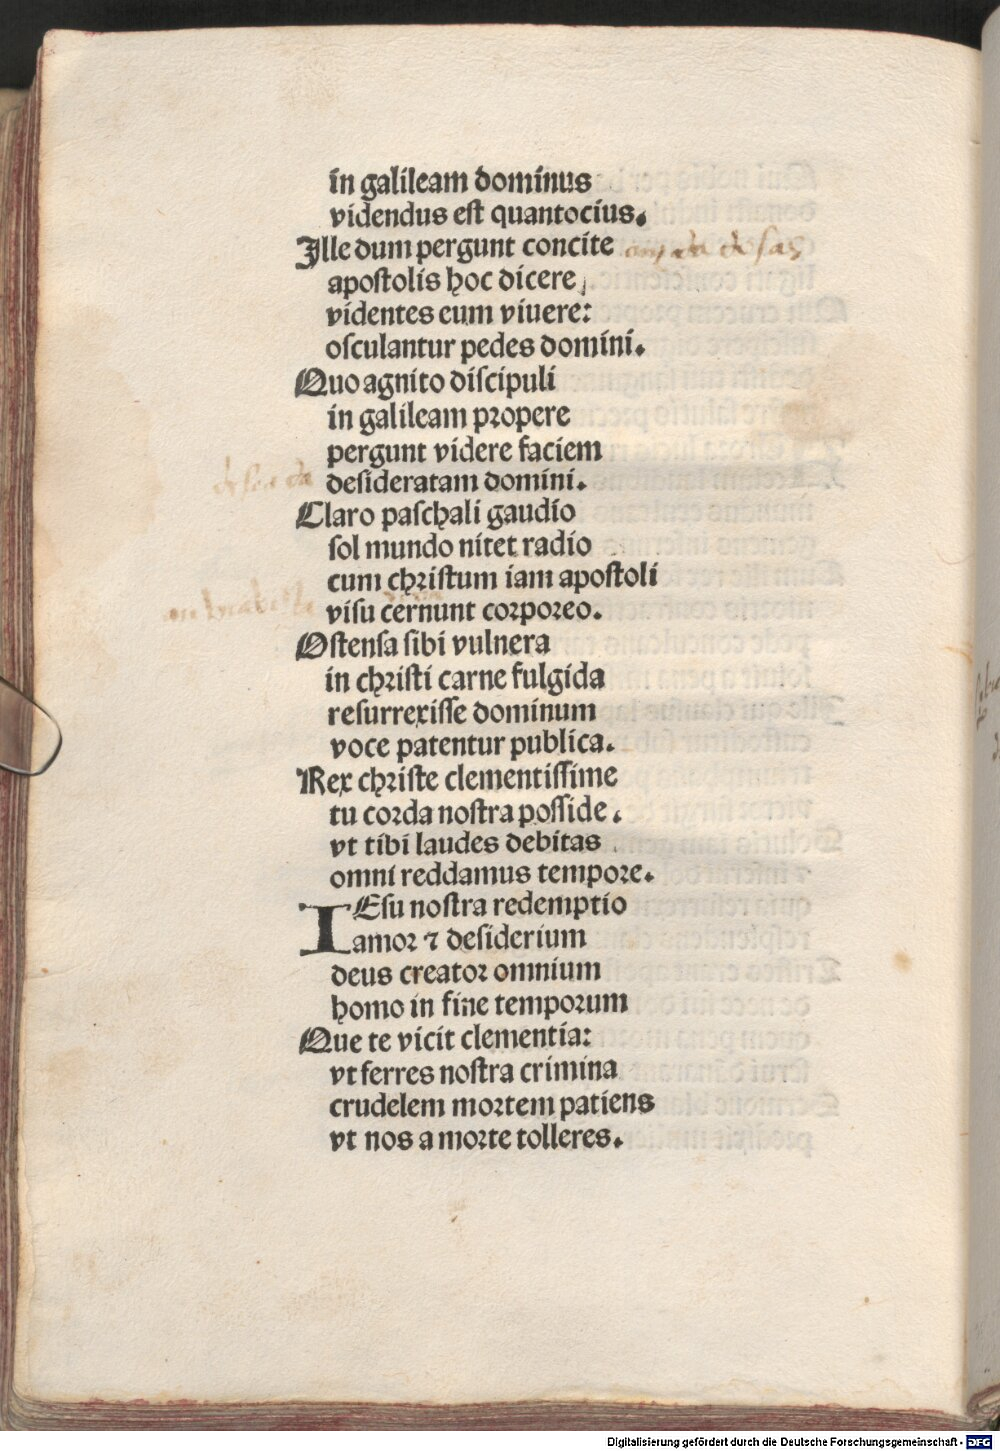 in galileam dominus
videndus est quantocius.
Ille dum pergunt concite
apostolis hoc dicere
videntes eum viuere:
osculantur pedes domini.
Quo agnito discipuli
in galileam propere
pergunt videre faciem
desideratam domini.
Claro paschali gaudio
sol mundo nitet radio
cum christum iam apostoli
visu cernunt corporeo.
Ostensa sibi vulnera
in christi carne fulgida
resurrexisse dominum
voce patentur publica.
Rex christe clementissime
tu corda nostra posside.
vt tibi laudes debitas
omni reddamus tempore.
IEsu nostra redemptio
amor ⁊ desiderium
deus creator omnium
homo in fine temporum
Que te vicit clementia:
vt ferres nostra crimina
crudelem mortem patiens
vt nos a morte tolleres.
Digitalisierung gefördert durch die Deutsche Forschungsgemeinschaft - DFG